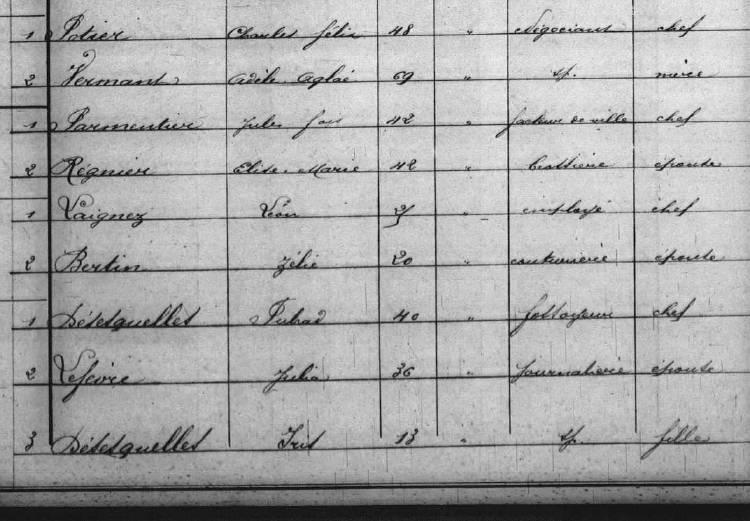 1 Potier Charles félix 48 " Négociant chef
2 Vermant Adèle Aglaé 69 " sp. mère
1 Parmentier Jules 42 " facteur de ville chef
2 Régnier Elise Marie 42 " épouse
1 Vaignez Léon " employé chef
2 Bertin Zélie 20 " couturière épouse
1 Désesquelles 40 " fossoyeur chef
2 Lefevre Julia 36 " journalière épouse
3 Désesquelles Iris 13 " sp. fille